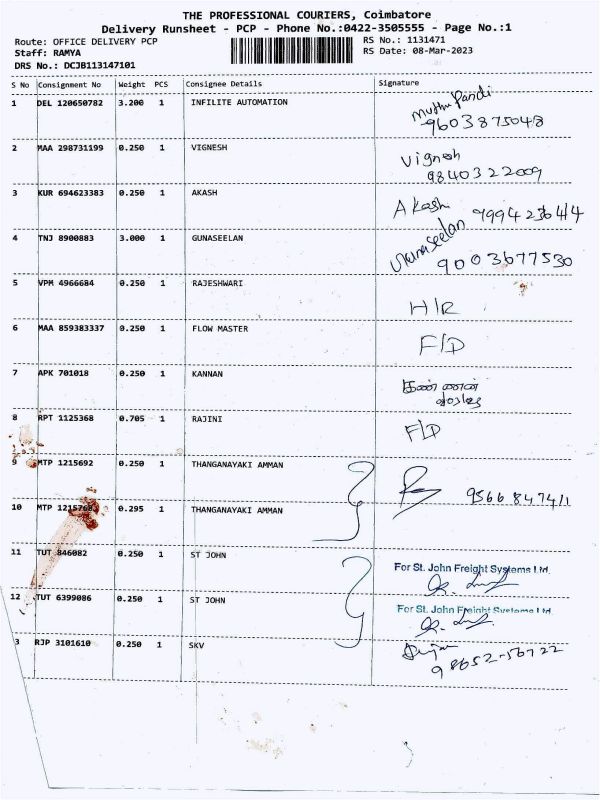 THE PROFESSIONAL COURIERS, Coimbatore
Delivery Runsheet - PCP - Phone No.:0422-3505555 - Page No.:1
Route: OFFICE DELIVERY PCP
RS No.: 1131471
Staff: RAMYA
RS Date: 08-Mar-2023
DRS No.: DCJB113147101
S No Consignment No Weight PCS Consignee Details Signature
1 DEL 120650782 3.200 1 INFILITE AUTOMATION Muthu Pandi
9603875048
2 MAA 298731199 0.250 1 VIGNESH Vignesh
9840322009
3 KUR 694623383 0.250 1 AKASH Akash
4 TNJ 8900883 3.000 1 GUNASEELAN Gunaseelan
9003677530
5 VPM 4966684 0.250 1 RAJESHWARI H/R
6 MAA 859383337 0.250 1 FLOW MASTER F/D
7 APK 701018 0.250 1 KANNAN கண்ணன்
8 RPT 1125368 0.705 1 RAJINI F/D
9 MTP 1215692 0.250 1 THANGANAYAKI AMMAN
10 MTP 0.295 1 THANGANAYAKI AMMAN
11 TUT 846082 0.250 1 ST JOHN For St. John Freight Systems Ltd.
12 TUT 6399086 0.250 1 ST JOHN For St. John Freight Systems Ltd.
3 RJP 3101610 0.250 1 SKV
98652-56722